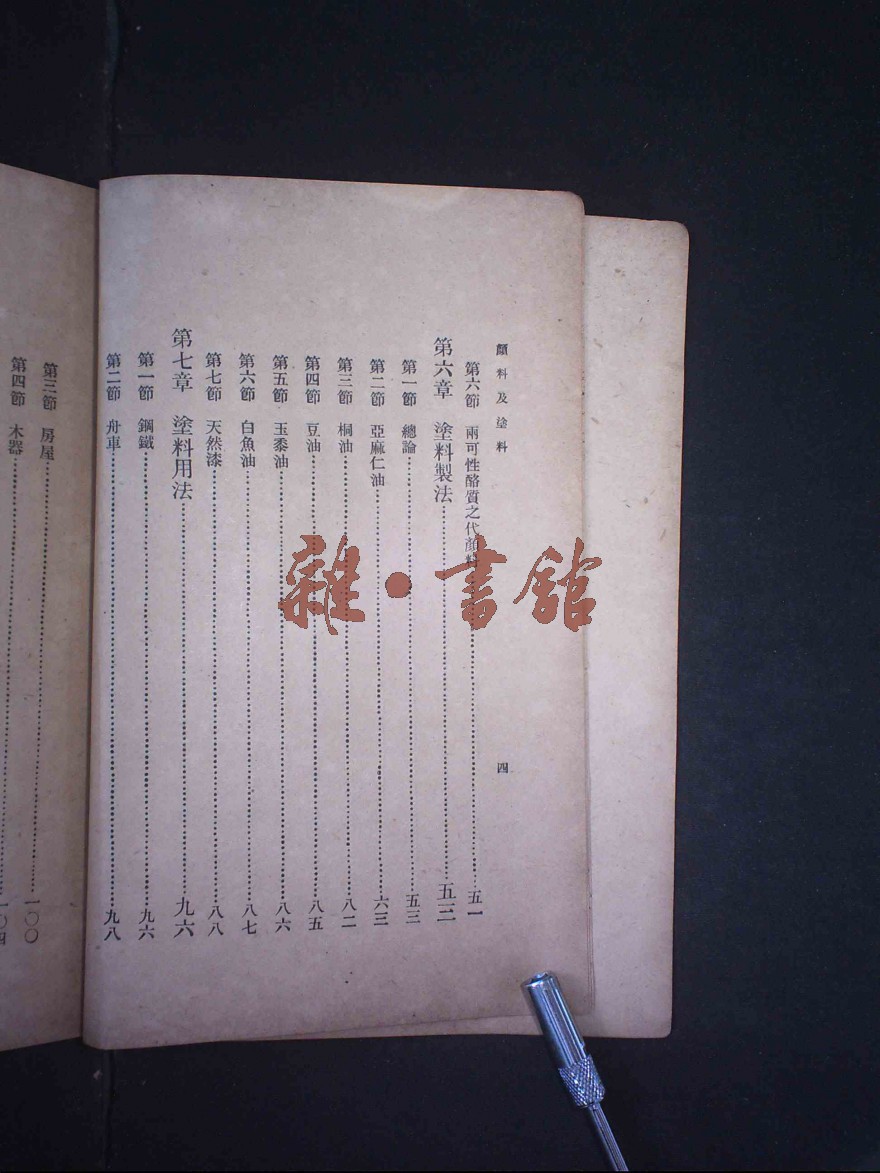 顏料及塗料
四
第六節 兩可性酪質之代顏料……五一
第六章 塗料製法……五三
第一節 總論……五三
第二節 亞麻仁油……六三
第三節 桐油……八二
第四節 豆油……八五
第五節 玉黍油……八六
第六節 白魚油……八七
第七節 天然漆……八八
第七章 塗料用法……九六
第一節 鋼鐵……九六
第二節 舟車……九八
第三節 房屋……一〇〇
第四節 木器……一〇四
雜·書館